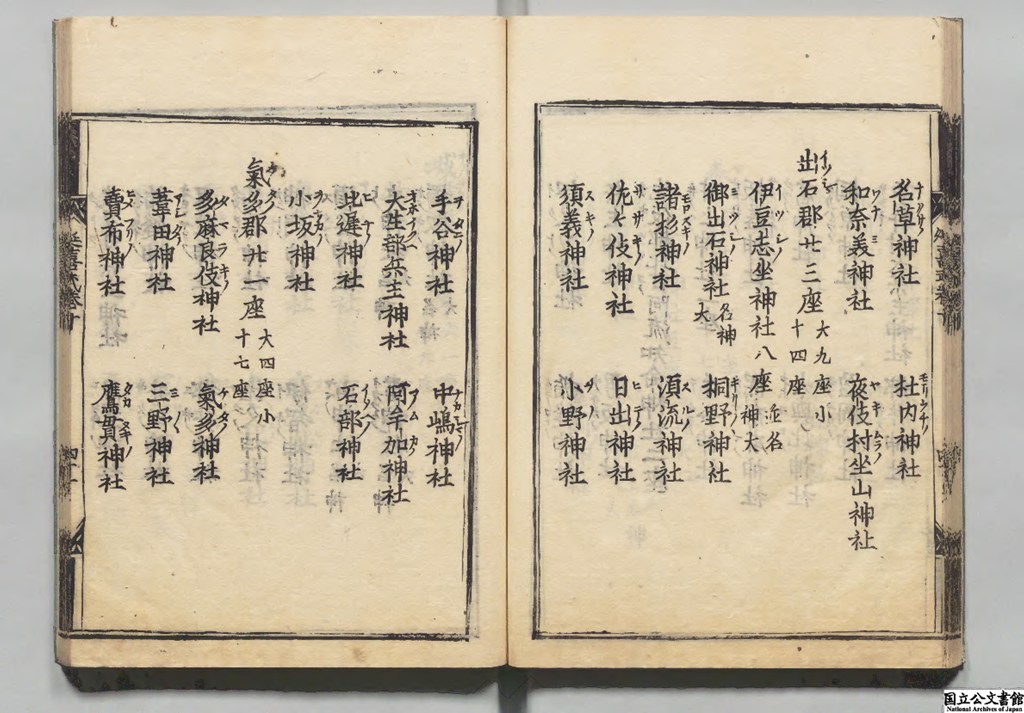 名草神社 杜内神社
和奈美神社 夜伎村坐山神社
出石郡廿三座 大九座小十四座
伊豆志坐神社八座 並名神大
御出石神社 名神大 桐野神社
諸杉神社 須流神社
佐々伎神社 日出神社
須義神社 小野神社
手谷神社 中嶋神社
大生部兵主神社 阿牟加神社
比遅神社 石部神社
小坂神社
氣多郡廿一座 大四座小十七座
多麻良伎神社 氣多神社
葦田神社 三野神社
賣布神社 鷹貫神社
延喜式巻十
国立公文書館
National Archives of Japan